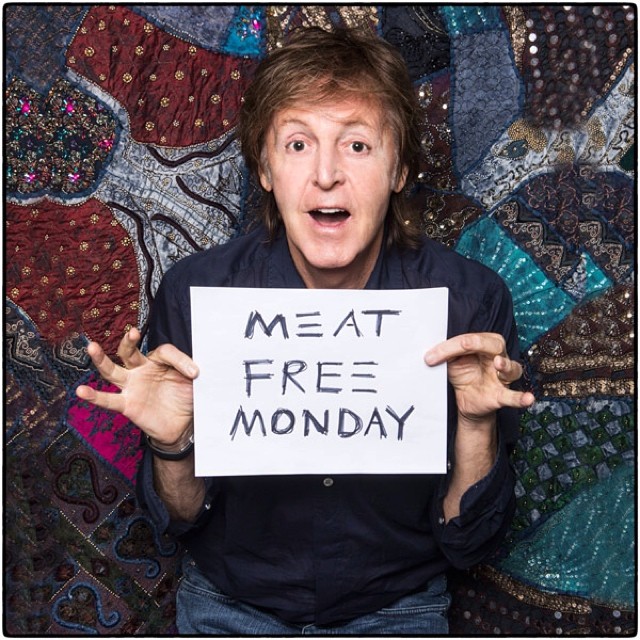 MEAT
FREE
MONDAY